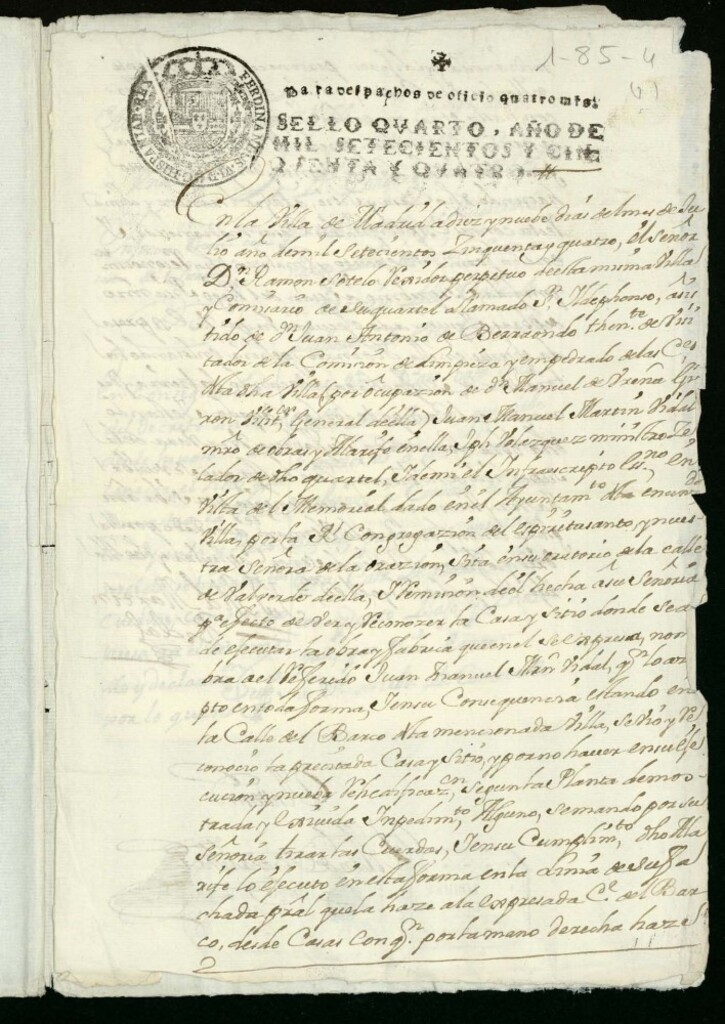 1-85-4
61
FERDINANDUS VI D.G. HISPANIAR. REX
Para despachos de oficio quatro mrs.
SELLO QVARTO, AÑO DE
MIL SETECIENTOS Y CIN
QVENTA Y QVATRO
En la Villa de Madrid a diez y nuebe dias del mes de Ju
lio año de mil setecientos zinquenta y quatro, el señor
Dn. Ramon Sotelo Rexidor perpetuo de esta misma Villa
y Comisario de su quartel llamado Sn. Ildephonso, asis
tido de dn. Juan Antonio de Berraondo thente. de Visi
tador de la Comision de Limpieza y empedrado de las Cs.
de esta dha Villa (por ocupazion de dn. Manuel de Ureña Gi
ron Visitor. General de ella) Juan Manuel Martin Vidal
mro de obras y Alarife en ella, Jph Velazquez ministro Ze
lador de dho quartel, y de mi el Infrascripto Ssno. en
Vista del Memorial dado en el Ayuntamto. de esta enunda.
Villa, por la Rl. Congregazion del espiritu santo, y nues
tra Señora de la orazion, sita en su oratorio de la calle
de Valverde de ella, y remision de el hecha a su Señoria
pa. efecto de ver y reconozer la Casa y sitio donde se a
de ejecutar la obra y fabrica que en el se expresa, nom
bra al Refferido Juan Manuel Mrn. Vidal, qn. lo az
pto en toda forma, y en su Consequencia estando en
la Calle del Barco de esta mencionada Villa, se vio y Re
conocio la precitada Casa y sitio, y por no haver en su eje
cucion y nueba Rehedificazn., segun la Planta demos
trada y exivida Inpedimto. Alguno, se mando por su
señoria tirar las Cuerdas, y en su Cumplimto. dho Ala
rife lo ejecuto en esta forma en la Linia de su fa
chada pral que la haze a la expresada Ce. del Bar
co, desde Casas con qn. por la mano derecha haze